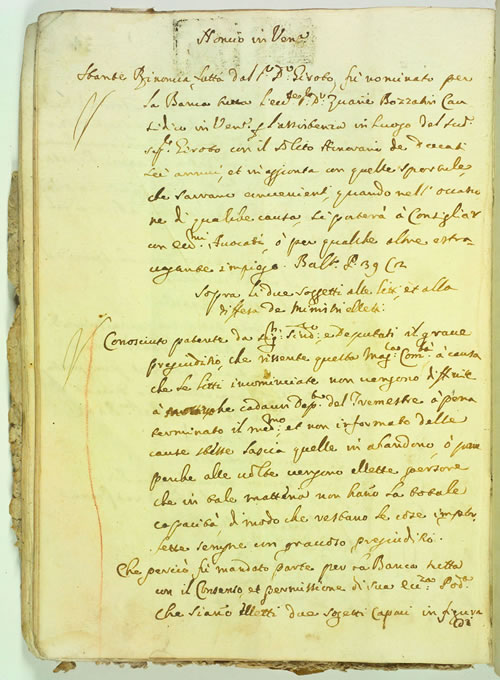 Noncio in Ven.a
Stante Rinoncia fatta dal S.r D.r Liroto, fù nominato per
la Banca tutta l'ecc.te D.r Zuane Bozzatin Cau
sidico in Ven.a p l'assistenza in luogo del sud.o
Sig.r Liroto con il solito Honorario de Ducati
sei annui, et in aggionta con quelle sportule,
che saranno convenienti, quando nell'occasio
ne di qualche causa, si porterà à Consigliar
con ecc.mi Avocati, ò per qualche altro estra
vagante impiego. Ball. P. 39 C. 2
Sopra li due Soggetti alle liti, et alla
diffesa de Ministri eletti.
Conosciuto patente da Sig.ri Sind.ci e Deputati il grave
pregiuditio, che rissente questa Mag.ca Com.tà à causa
che le litti incominciate non vengono diffinite
à che cadaun Dep.to del Trimestre à pena
terminato il med.mo, et non informato delle
cause istesse lascia quelle in abandono, ò pure
perche alle volte vengono ellette persone
che in tale materia non hano la totale
capacità, di modo che restano le cose imper
fette sempre con gravoso pregiuditio.
Che perciò fù mandato parte per la Banca tutta
con il Consenso, et permissione di Sua Ecc.za Pod.tà
che siano elletti due Sogetti Capaci in figura
di